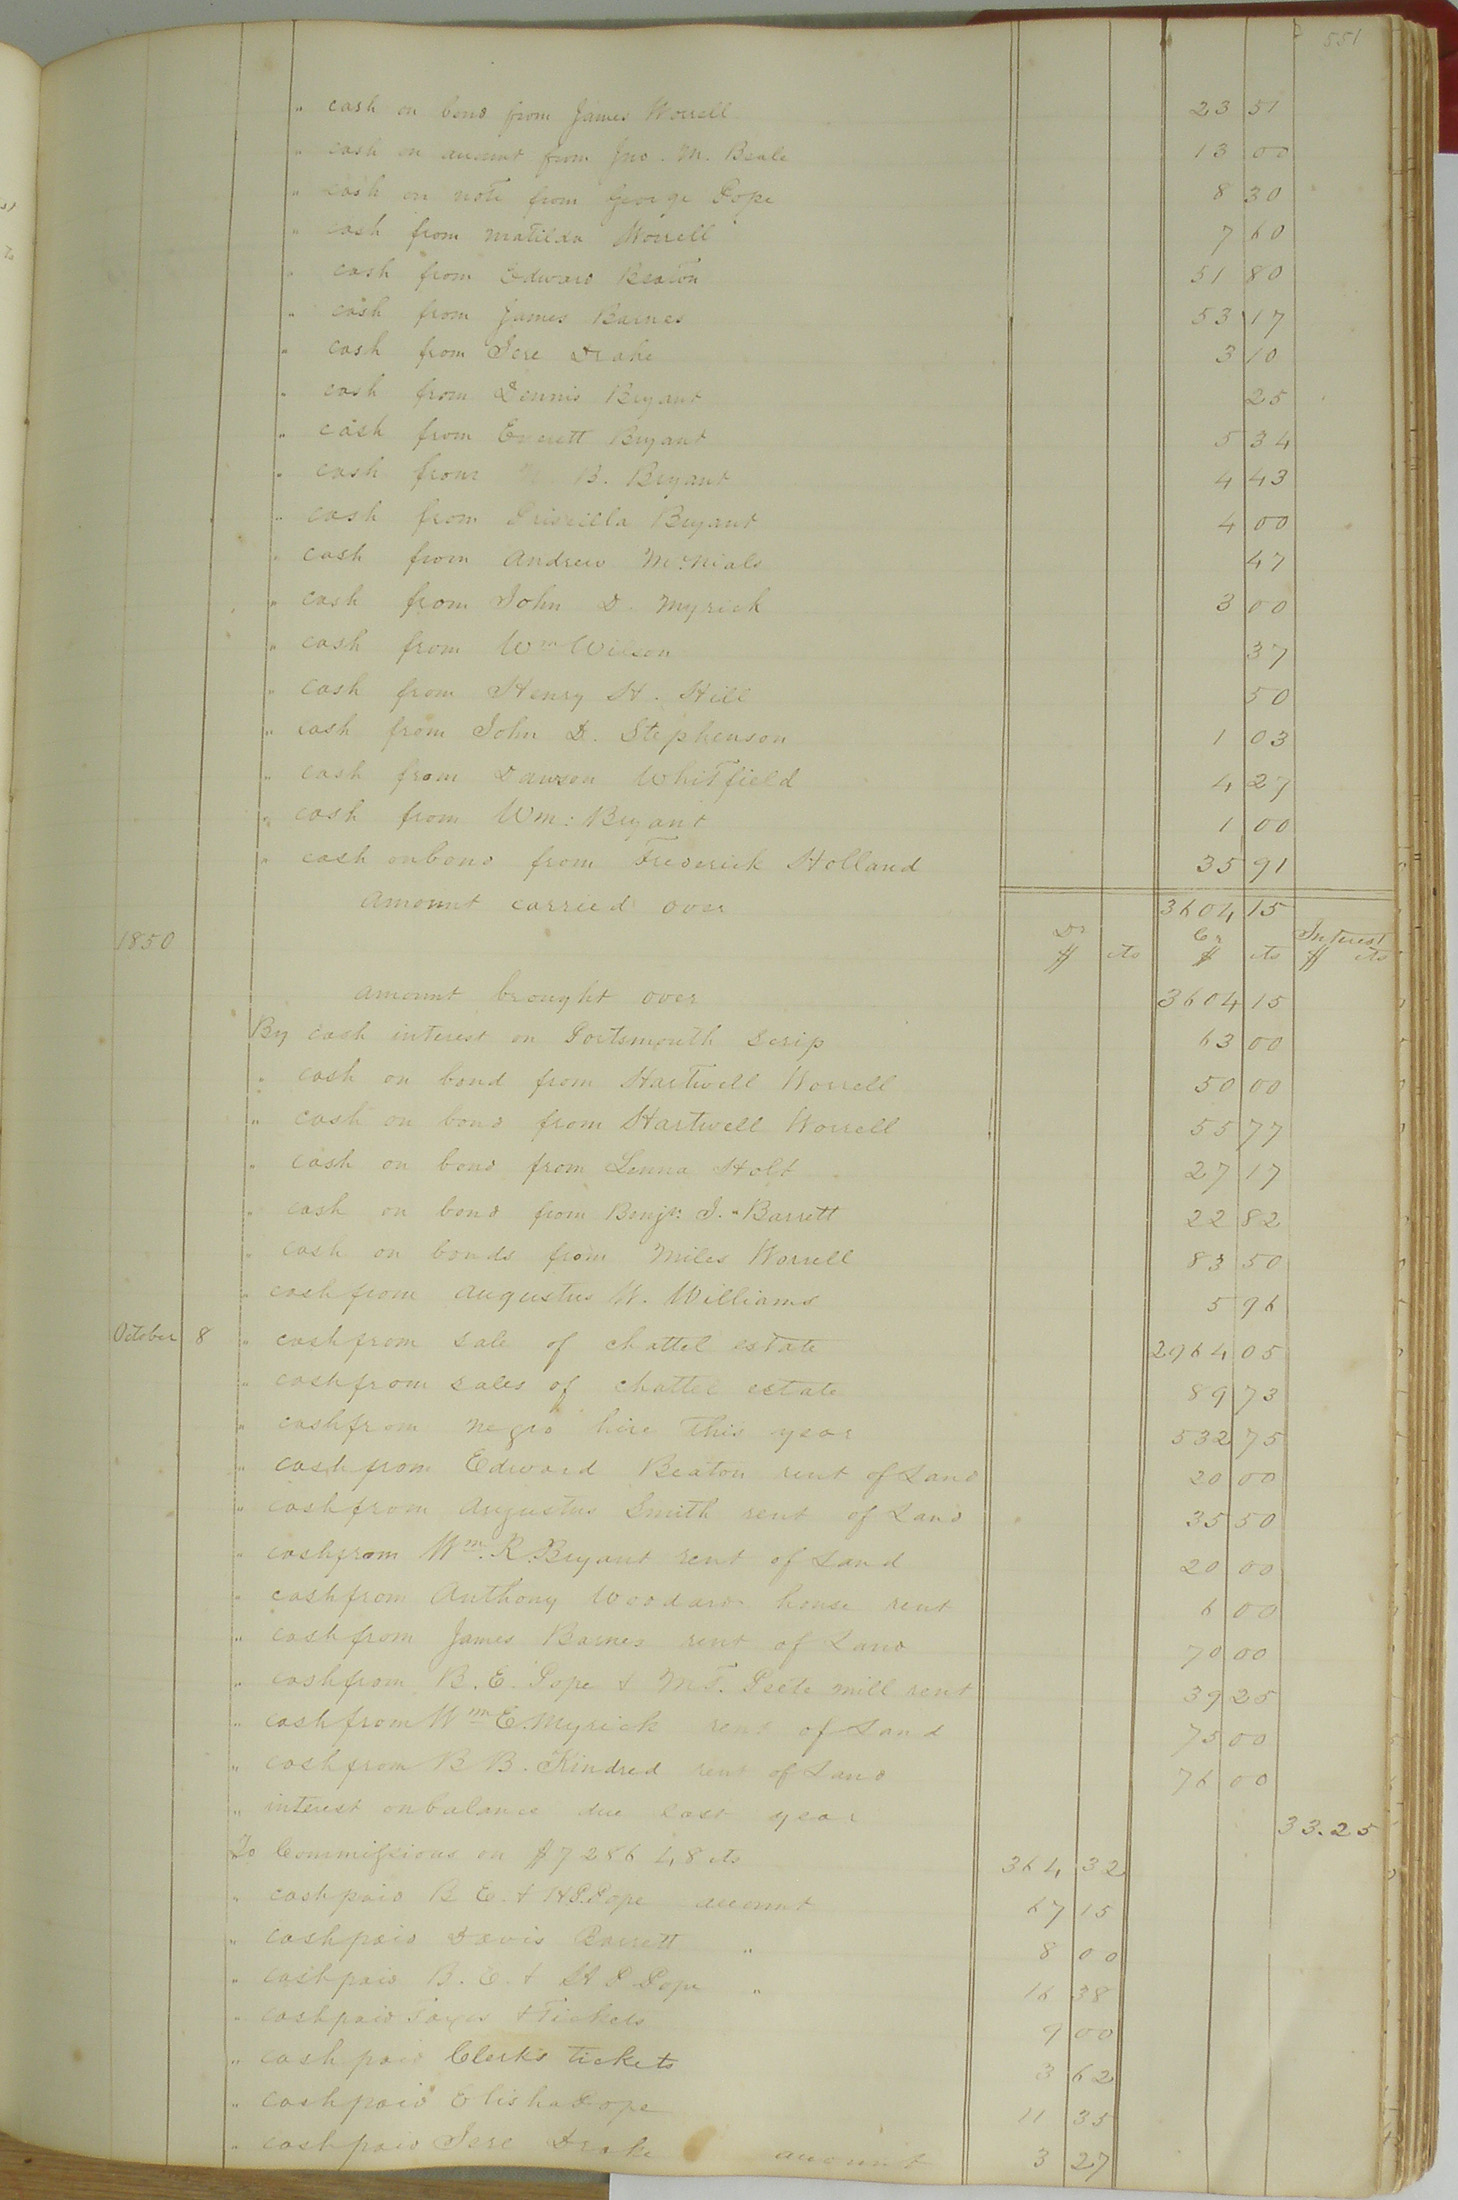 551
" cash on bond from James Worrell 23 51
" cash on account from Jno. M. Beale 13 00
" cash on note from George Pope 8 30
" cash from Matilda Worrell 7 60
" cash from Edward Beaton 51 80
" cash from James Barnes 53 17
" cash from Jere Drake 3 10
" cash from Dennis Bryant 25
" cash from Everett Bryant 5 34
" cash from B. Bryant 4 43
" cash from Priscilla Bryant 4 00
" cash from Andrew McNials 47
" cash from John D. Myrick 3 00
" cash from Wm Wilson 37
" cash from Henry H. Hill 50
" cash from John D. Stephenson 1 03
" cash from Dawson Whitfield 4 27
" cash from Wm: Bryant 1 00
" cash on bond from Frederick Holland 35 91
Amount carried over 3604 15
1850 Dr $ cts Cr $ cts Interest $ cts
amount brought over 3604 15
By cash interest on Portsmouth Scrip 63 00
" cash on bond from Hartwell Worrell 50 00
" cash on bond from Hartwell Worrell 55 77
" cash on bond from Lenna Holt 27 17
" cash on bond from Benjn: J. Barrett 22 82
" cash on bonds from Miles Worrell 83 50
" cash from Augustus W. Williams 5 96
October 8 " cash from sale of chattel estate 2964 05
" cash from sales of chattel estate 89 73
" cash from negro hire this year 532 75
" cash from Edward Beaton rent of Land 20 00
" cash from Augustus Smith rent of Land 35 50
" cash from Wm. R. Bryant rent of Land 20 00
" cash from Anthony Woodard house rent 6 00
" cash from James Barnes rent of Land 70 00
" cash from B. E. Pope & M T. Peete mill rent 39 25
" cash from Wm E. Myrick rent of Land 75 00
" cash from B B. Kindred rent of Land 76 00
" interest on balance due last year 33.25
To Commissions on $7286 48 cts 364 32
" cash paid B E. & H P. Pope account 67 15
" cash paid Davis Barrett " 8 00
" cash paid B. E. & H P Pope " 16 38
" cash paid Taxes & Tickets 9 00
" cash paid Clerks tickets 3 62
" cash paid Elisha Pope 11 35
" cash paid Jere Drake account 3 27